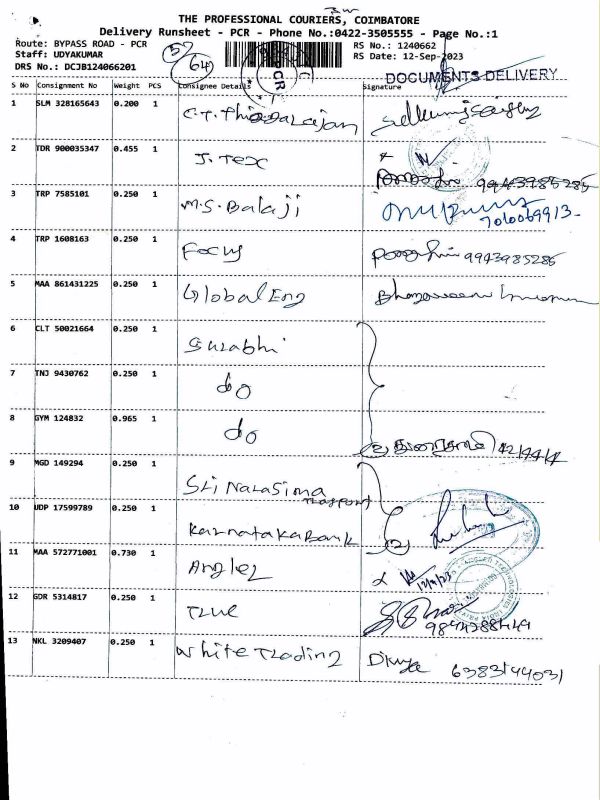 THE PROFESSIONAL COURIERS, COIMBATORE
Delivery Runsheet - PCR - Phone No.:0422-3505555 - Page No.:1
Route: BYPASS ROAD - PCR
Staff: UDYAKUMAR
DRS No.: DCJB124066201
64
PCR
RS No.: 1240662
RS Date: 12-Sep-2023
DOCUMENTS DELIVERY
S No Consignment No Weight PCS Consignee Details Signature
1 SLM 328165643 0.200 1
2 TDR 900035347 0.455 1 J. Tex 9943985285
3 TRP 7585101 0.250 1 M.S. Balaji 7010069913
4 TRP 1608163 0.250 1 Focus 9943985285
5 MAA 861431225 0.250 1 Global Eng
6 CLT 50021664 0.250 1 Surabhi
7 TNJ 9430762 0.250 1 do
8 GYM 124832 0.965 1 do
9 MGD 149294 0.250 1 Sri Narasima
10 UDP 17599789 0.250 1 Karnataka Bank
11 MAA 572771001 0.730 1 Angler 12/9/23
12 GDR 5314817 0.250 1 True
13 NKL 3209407 0.250 1 White Trading 6383144031